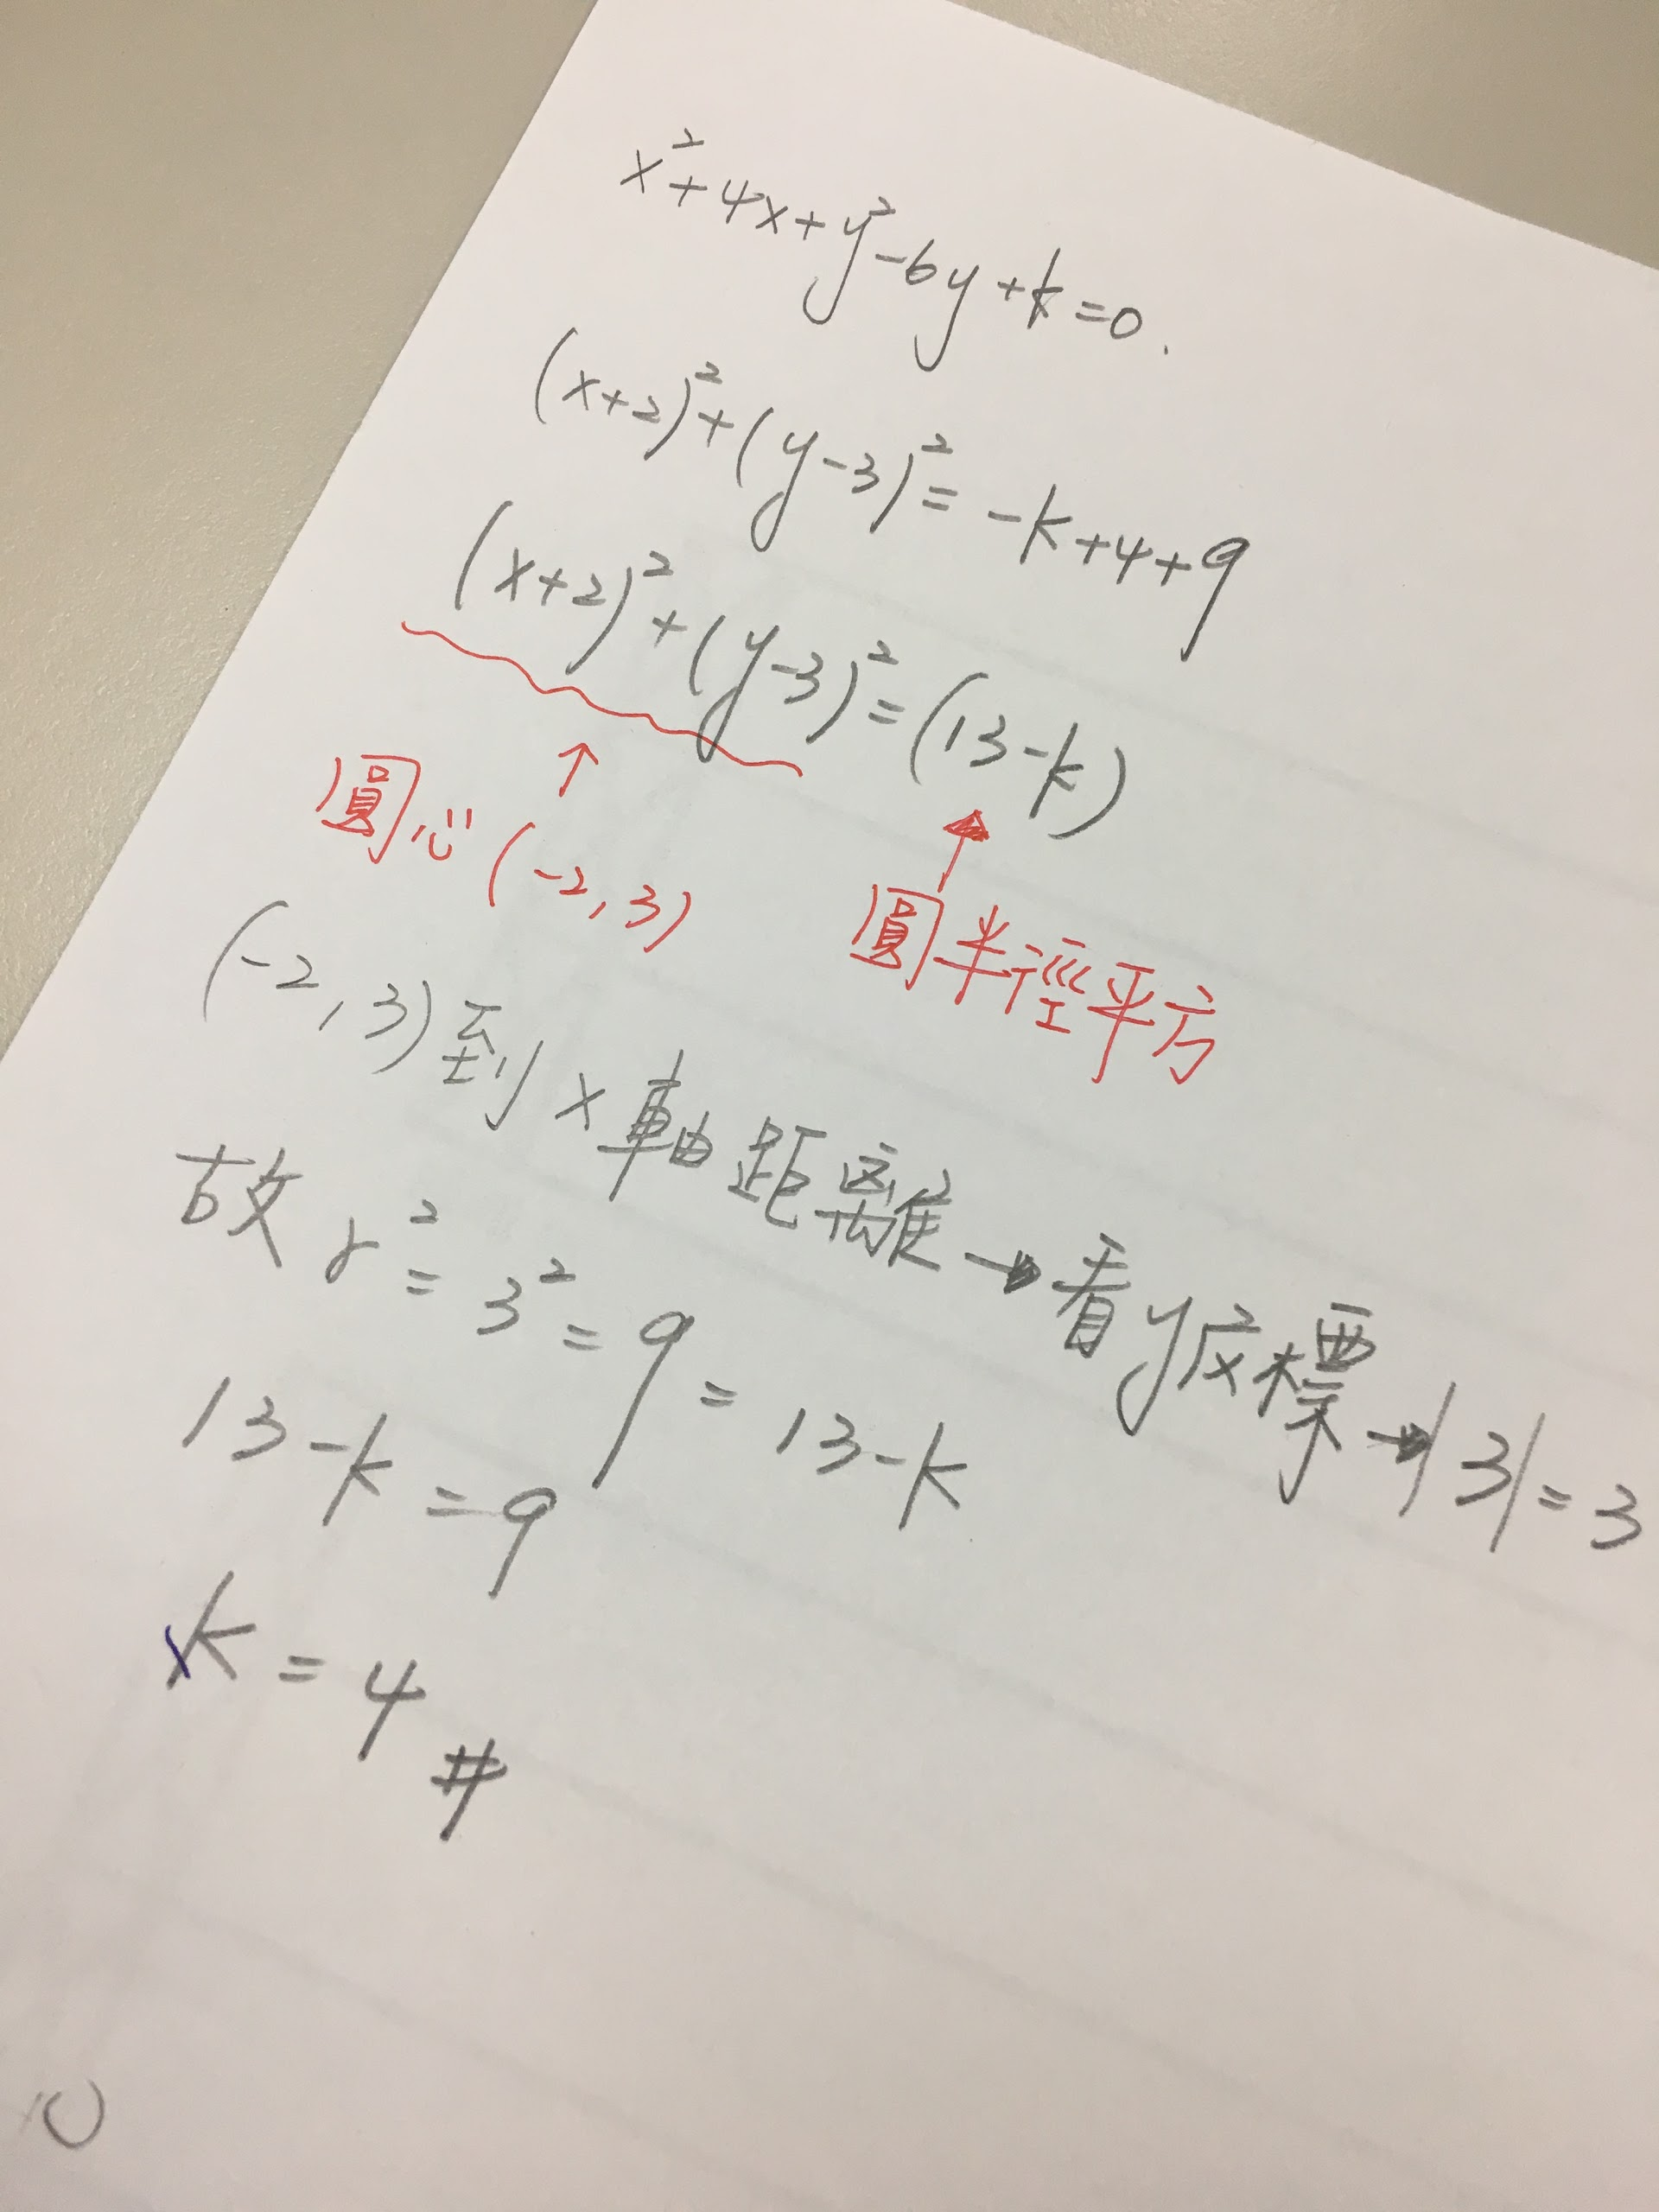 x²+4x+y²-6y+k=0.
(x+2)²+(y-3)²=-k+4+9
(x+2)²+(y-3)²=(13-k)
↑
圓心(-2,3)
圓半徑平方
(-2,3)到x軸距離→看y座標→|3|=3
故r²=3²=9=13-k
13-k=9
k=4#